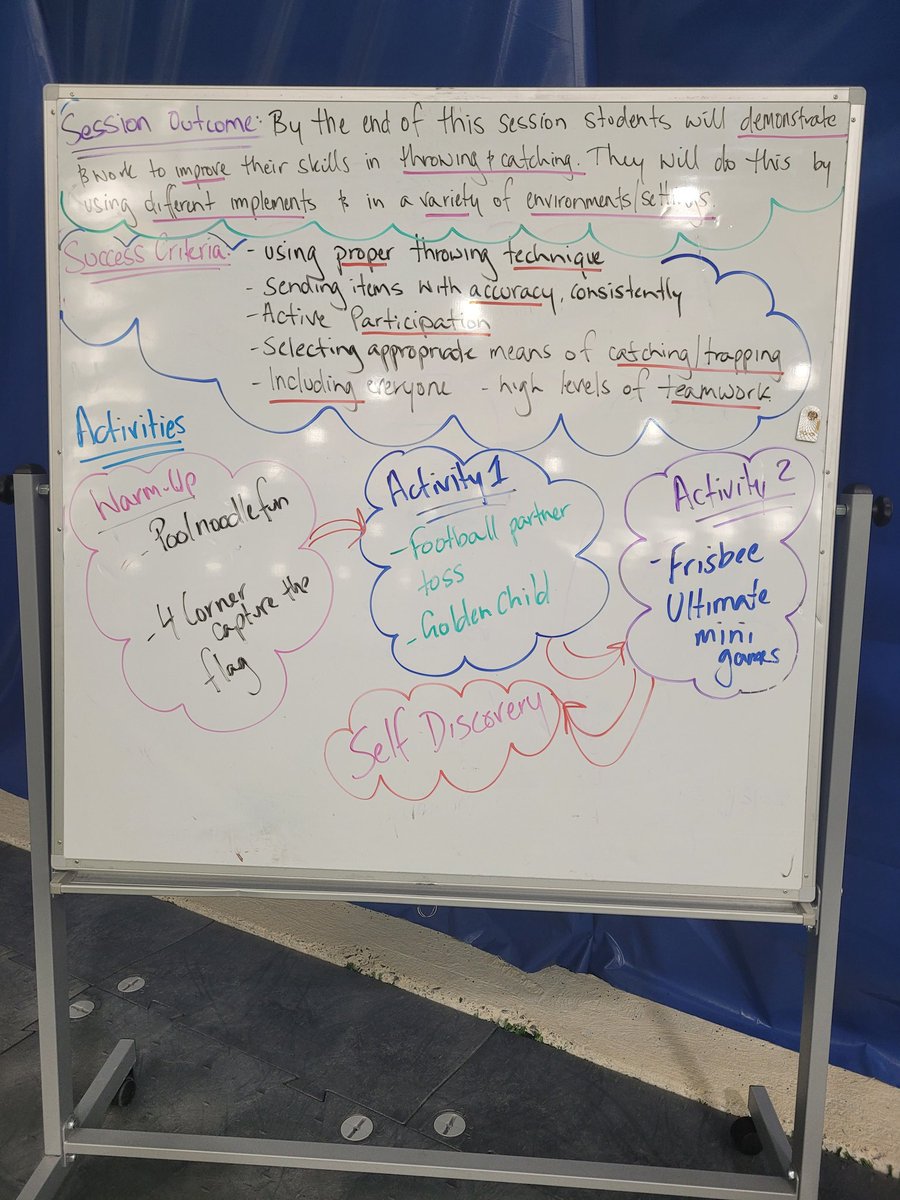 Session Outcome: By the end of this session students will demonstrate
& work to improve their skills in throwing & catching. They will do this by
using different implements & in a variety of environments/settings.
Success Criteria: - using proper throwing technique
- Sending items with accuracy, consistently
- Active Participation
- Selecting appropriate means of catching/trapping
- Including everyone - high levels of teamwork
Activities
Warm-Up
- Pool noodle fun
- 4 Corner
capture the
flag
Activity 1
- Football partner
toss
- Golden Child
Activity 2
- Frisbee
Ultimate
mini
games
Self Discovery